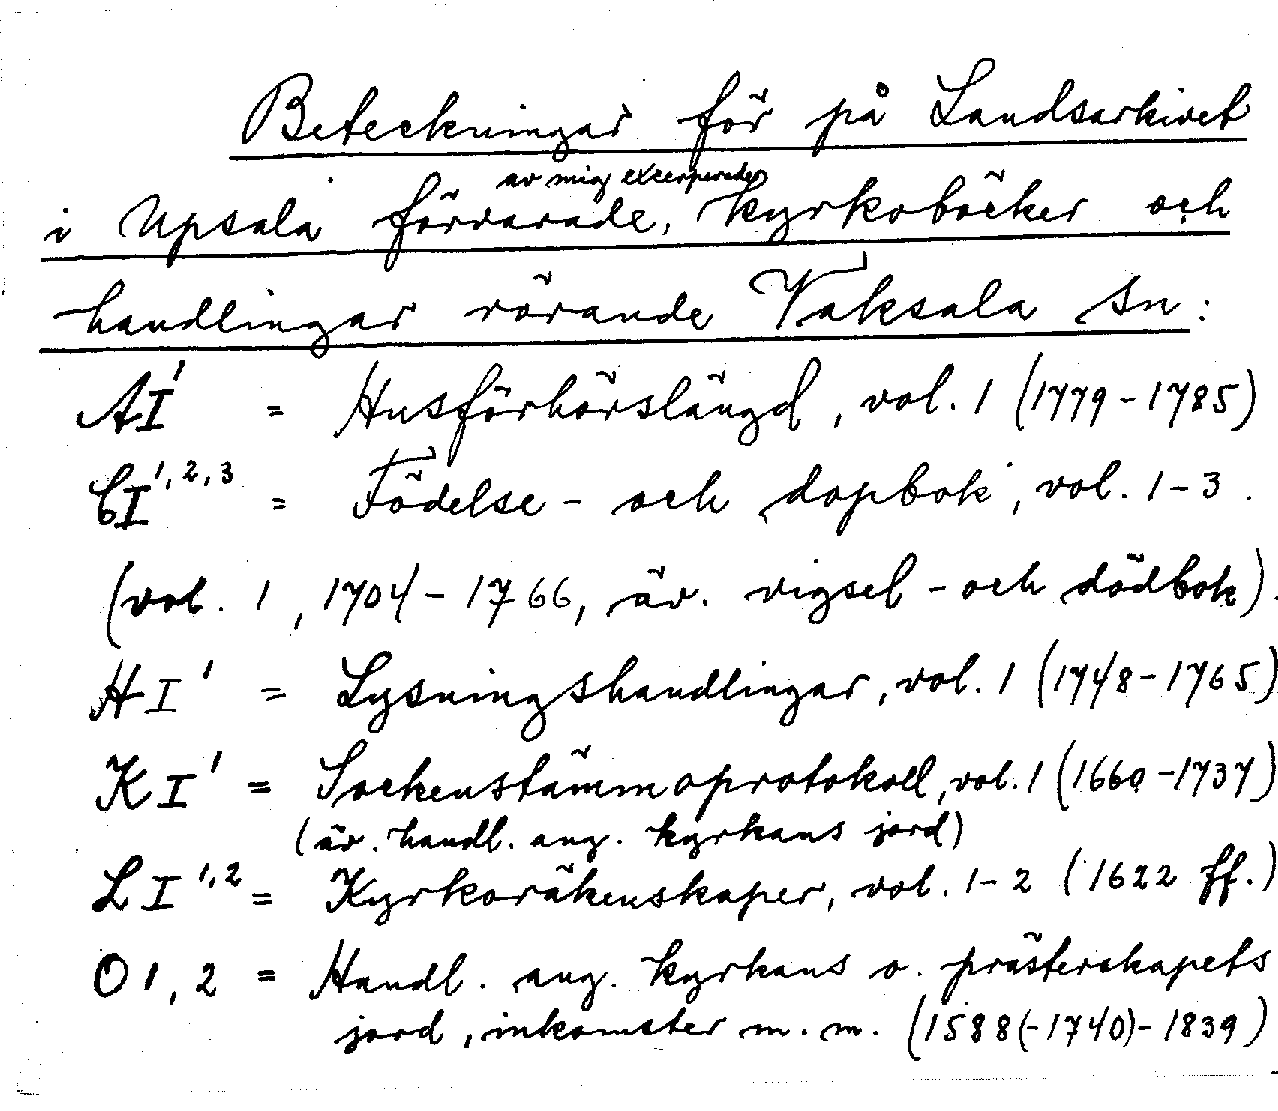 Beteckningar för på Landsarkivet
av mig excerperade
i Upsala förvarade, kyrkoböcker och
handlingar rörande Vaksala sn:
AI¹ = Husförhörslängd, vol. 1 (1779-1785)
CI¹,²,³ = Födelse- och dopbok, vol. 1-3.
(vol. 1, 1704-1766, äv. vigsel- och dödbok).
HI¹ = Lysningshandlingar, vol. 1 (1748-1765)
KI¹ = Sockenstämmoprotokoll, vol. 1 (1660-1737)
(äv. handl. ang. kyrkans jord)
LI¹,² = Kyrkoräkenskaper, vol. 1-2 (1622 ff.)
O1,2 = Handl. ang. kyrkans o. prästerskapets
jord, inkomster m.m. (1588(-1740)-1839)